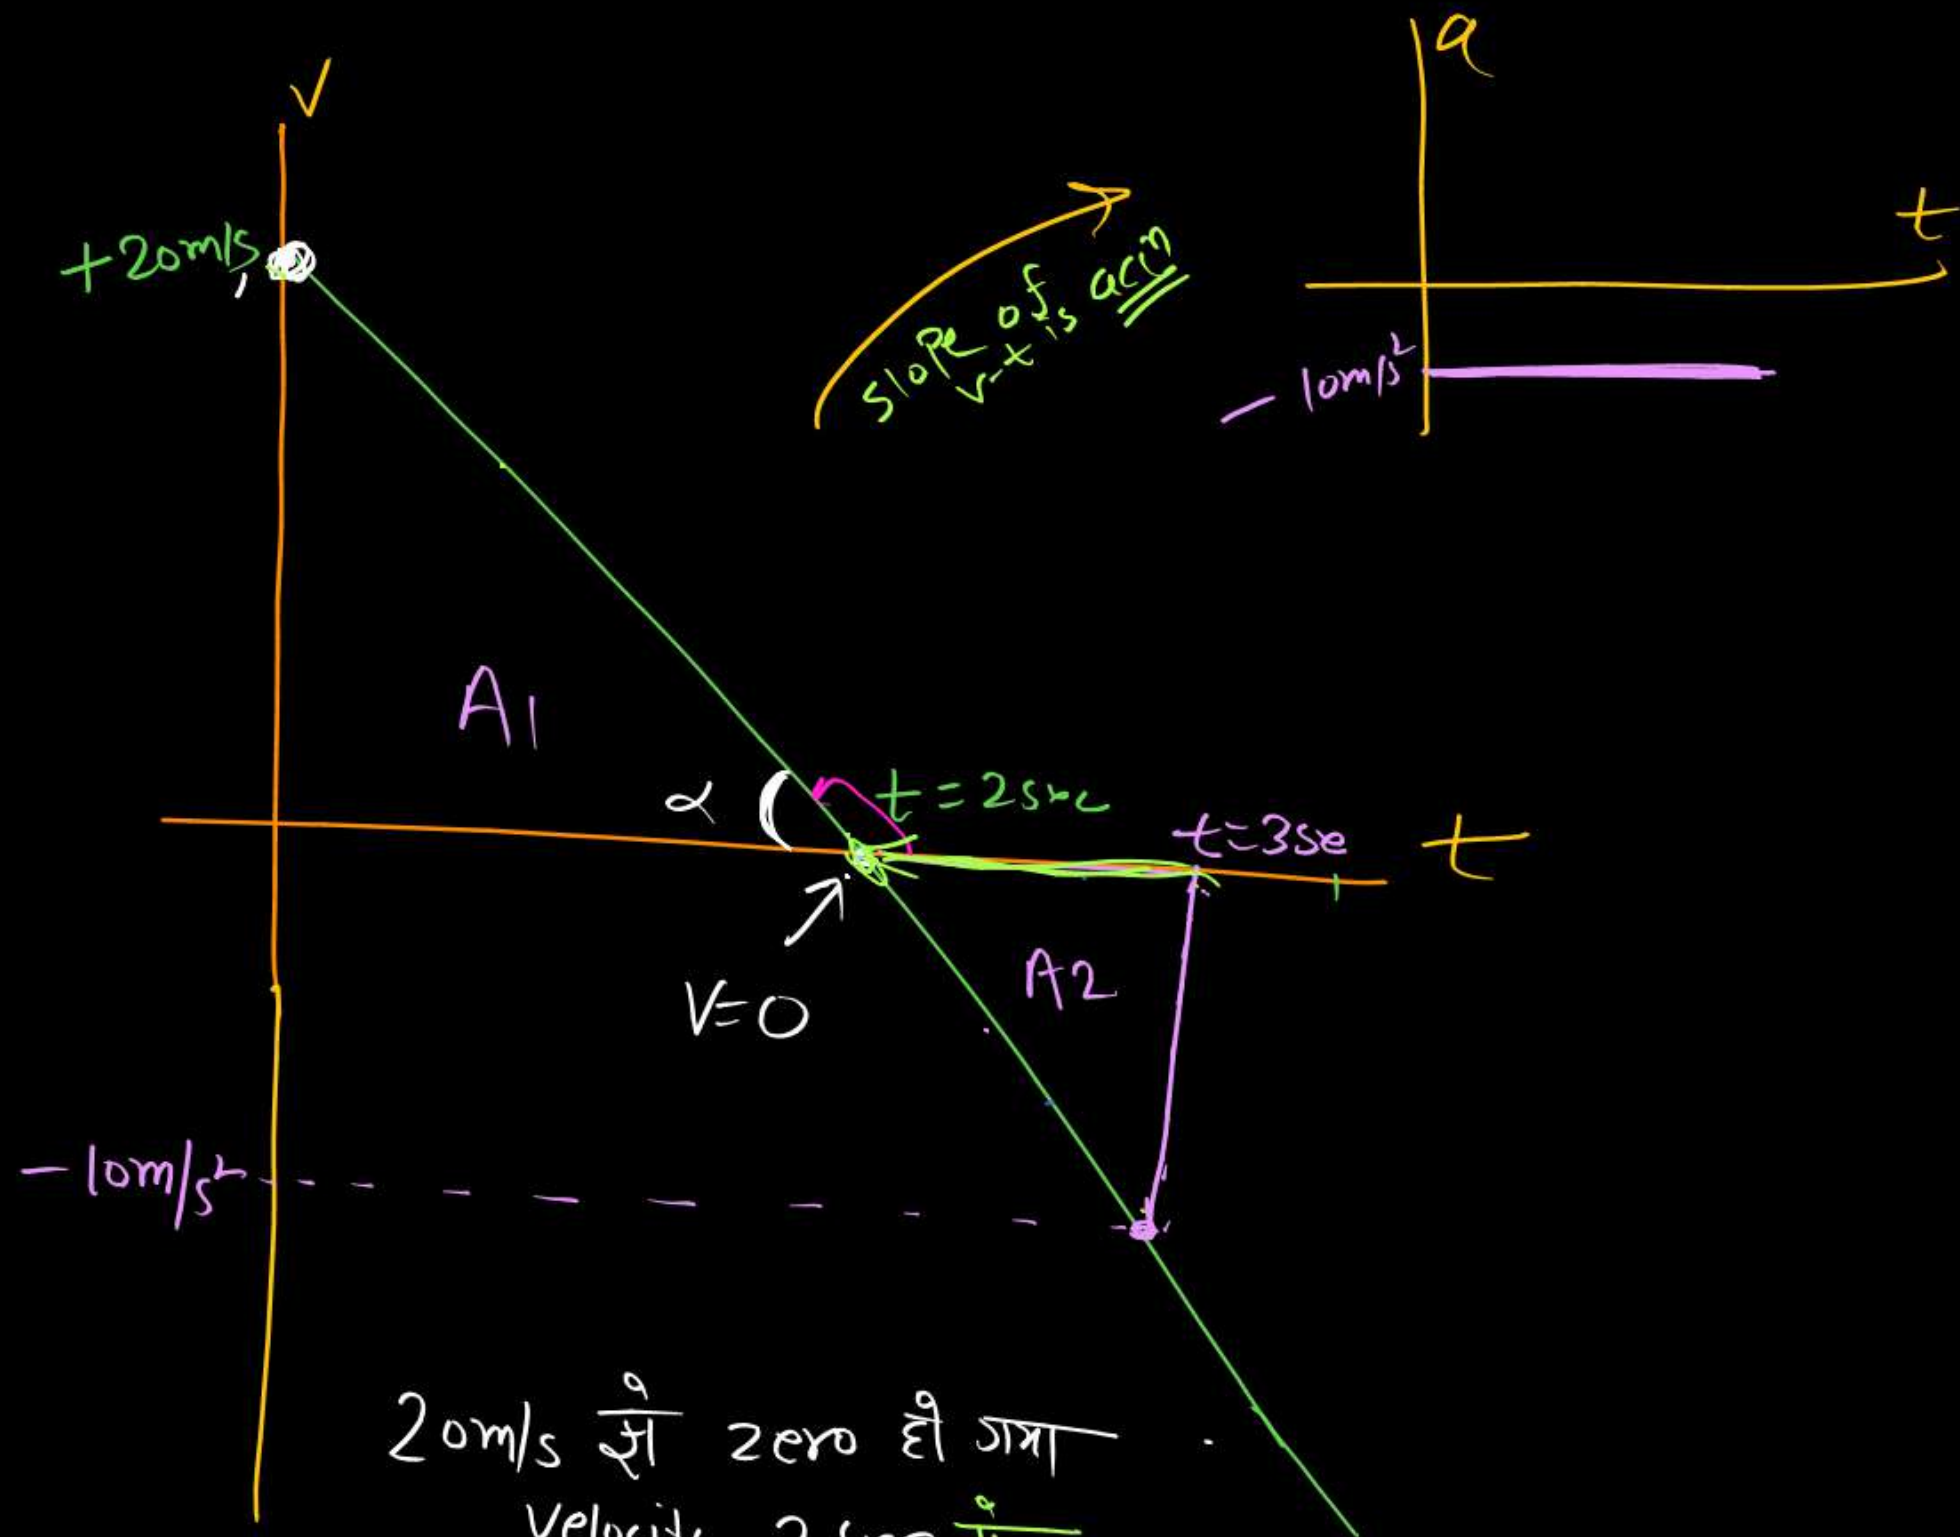 v
a
t
+20m/s
slope of
v-t is accⁿ
-10m/s²
A1
α
t=2sec
t=3se
t
A2
V=0
-10m/s²
20m/s से zero हो गया
Velocity 2 sec में